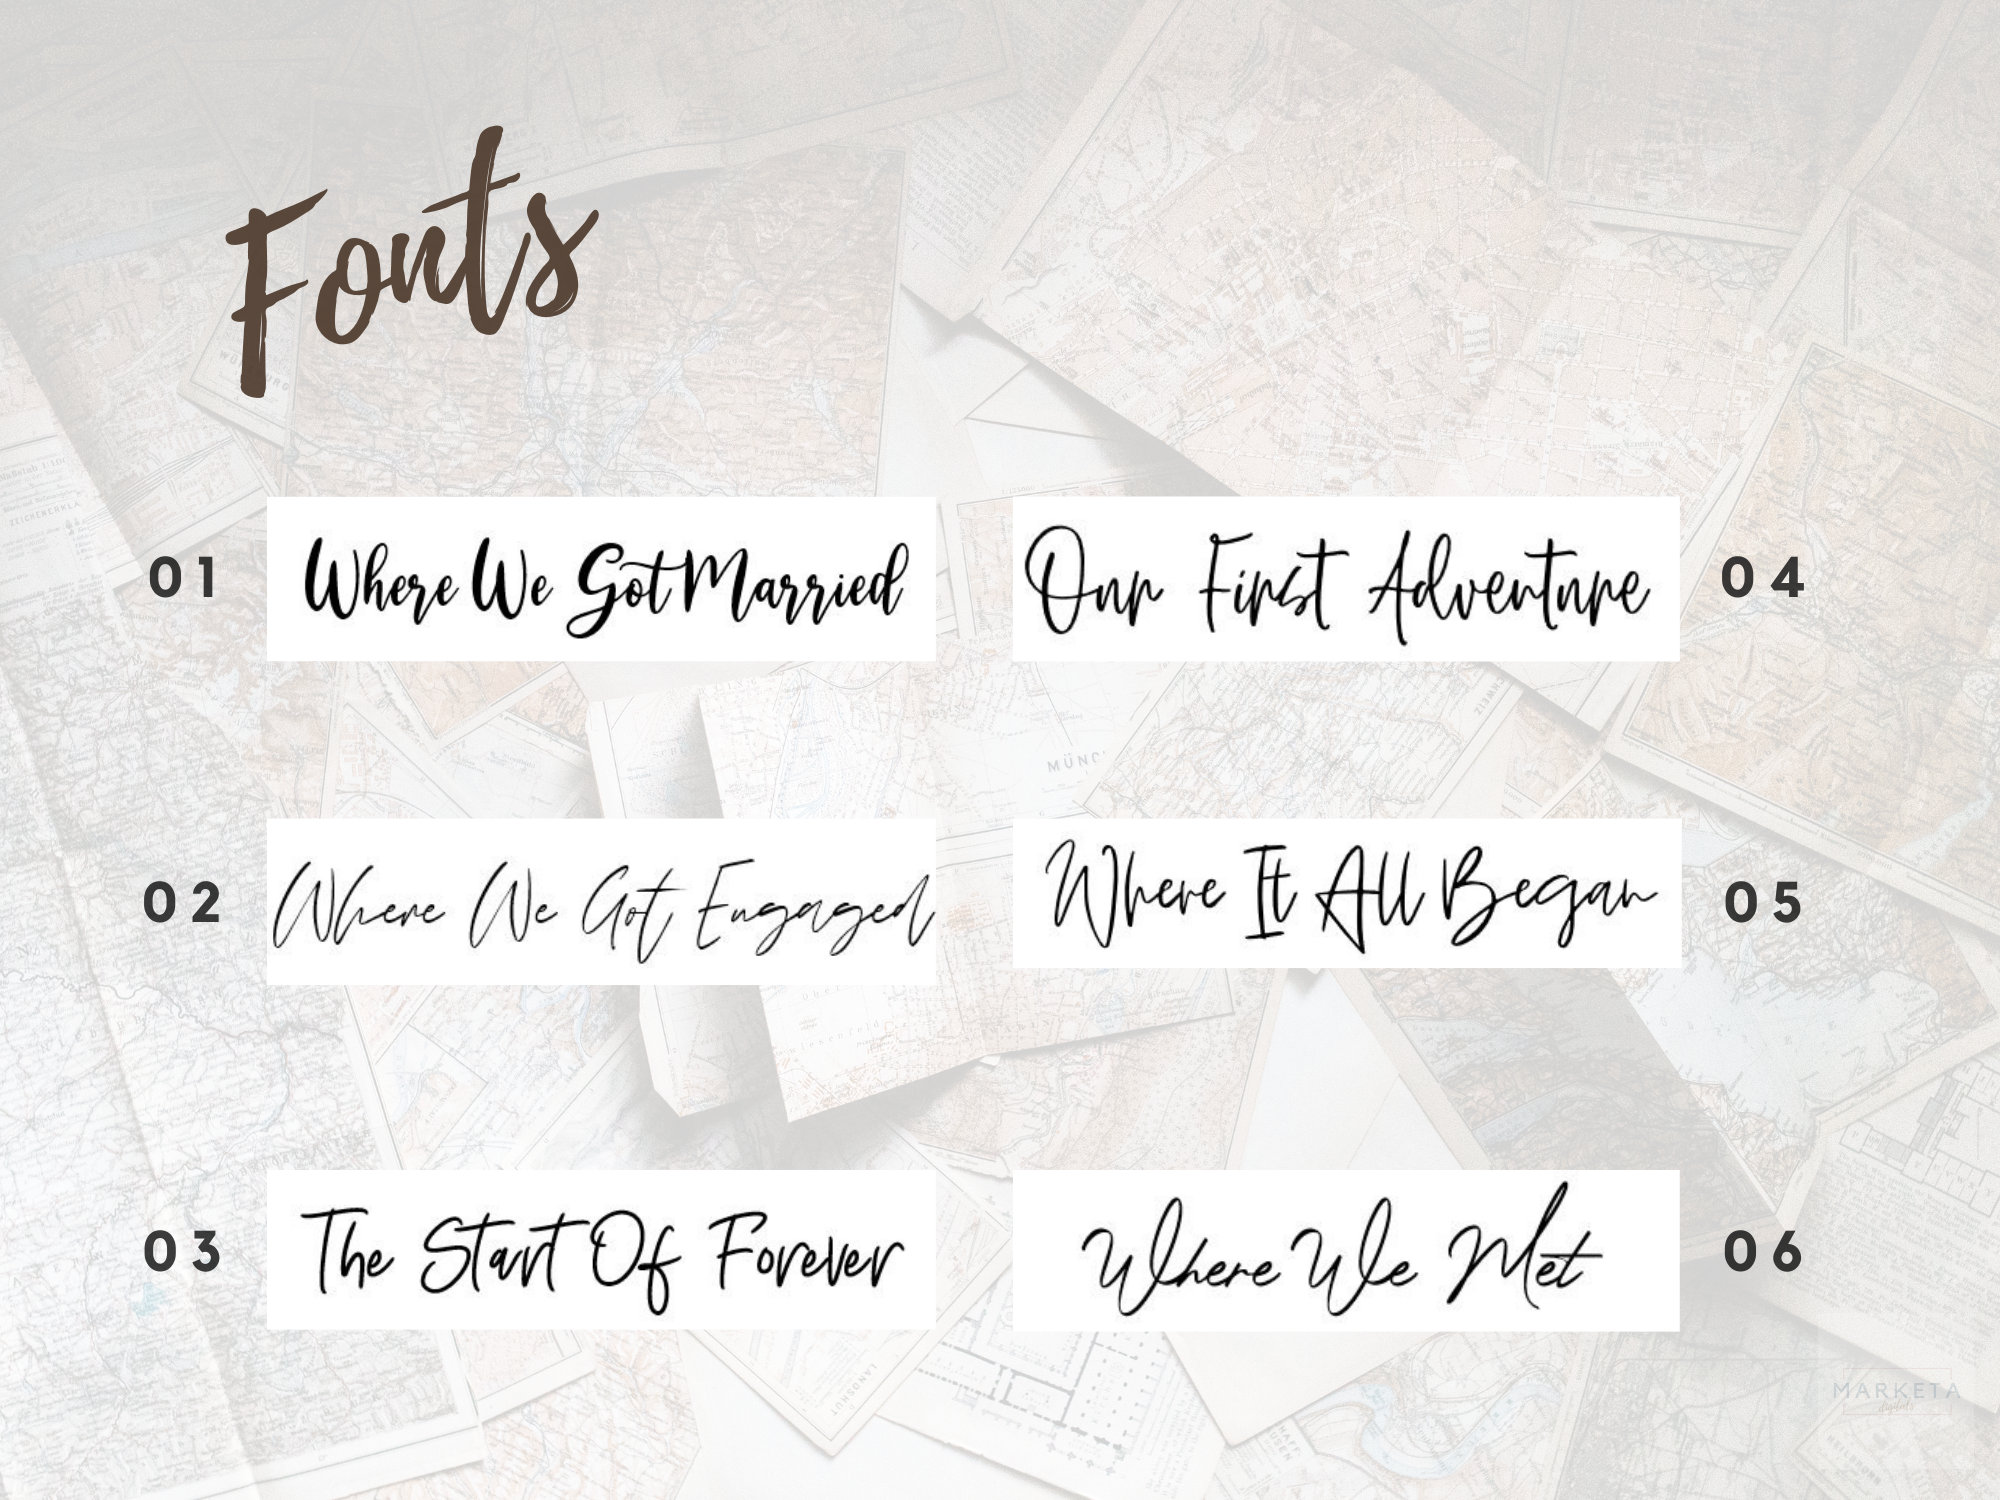 Fonts
01
Where We Got Married
Our First Adventure
04
02
Where We Got Engaged
Where It All Began
05
03
The Start Of Forever
Where We Met
06
MARKETA
digitals
MÜNC
ZEICHENERKLÄ
LANDSHUT